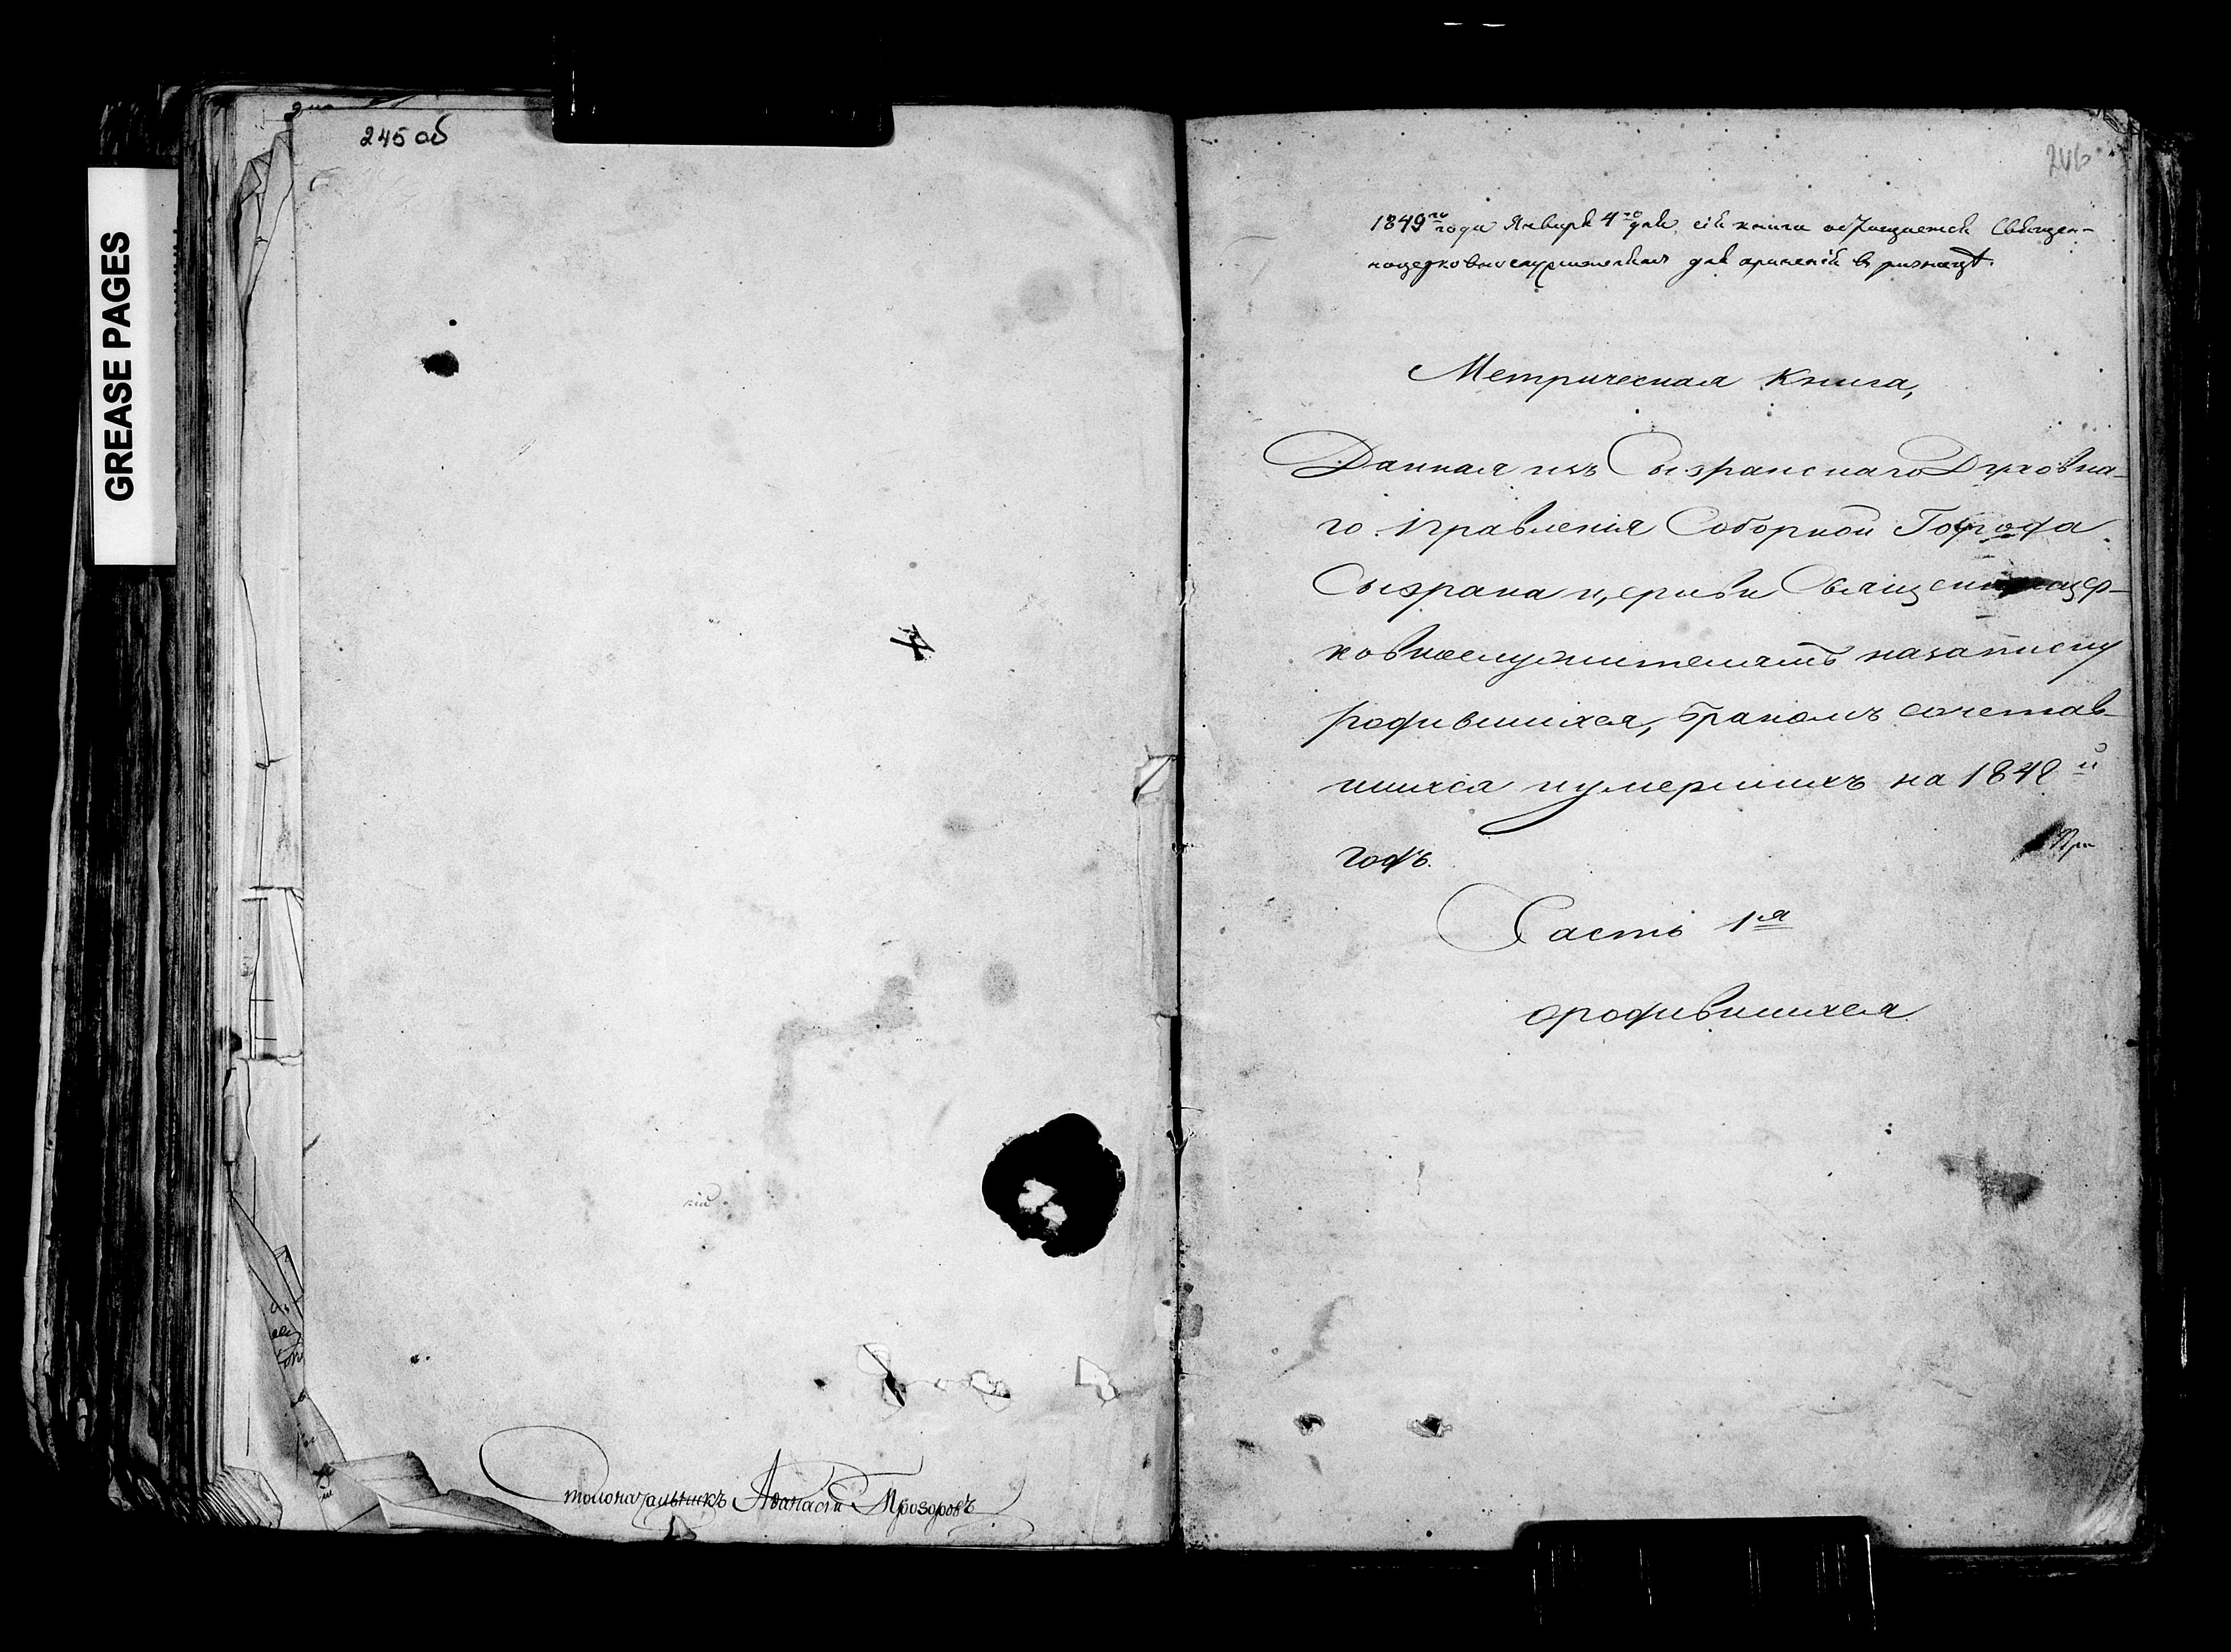 GREASE PAGES
245 об
кій
Столоначальникъ Аѳанасій Прозоровъ
246
1849го года Января 4го дня сія книга обращается Священ-
ноцерковнослужителямъ для храненія въ ризницѣ.
Метрическая Книга,
Данная изъ Сызранскаго Духовна-
го Правленія Соборной Города
Сызрана церкви Священноцер-
ковнослужителямъ на записку
родившихся, бракомъ сочетав-
шихся и умершихъ на 1848й
годъ.
При
Часть 1я
о родившихся